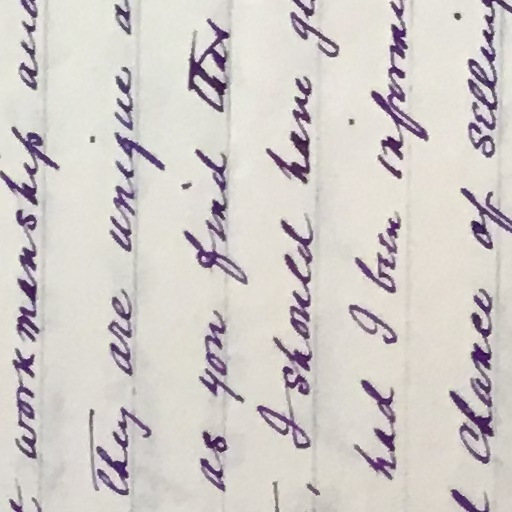 t workmanship and
They are unique a
as you find that
, I should have gl
had I been informe
l chance of selling